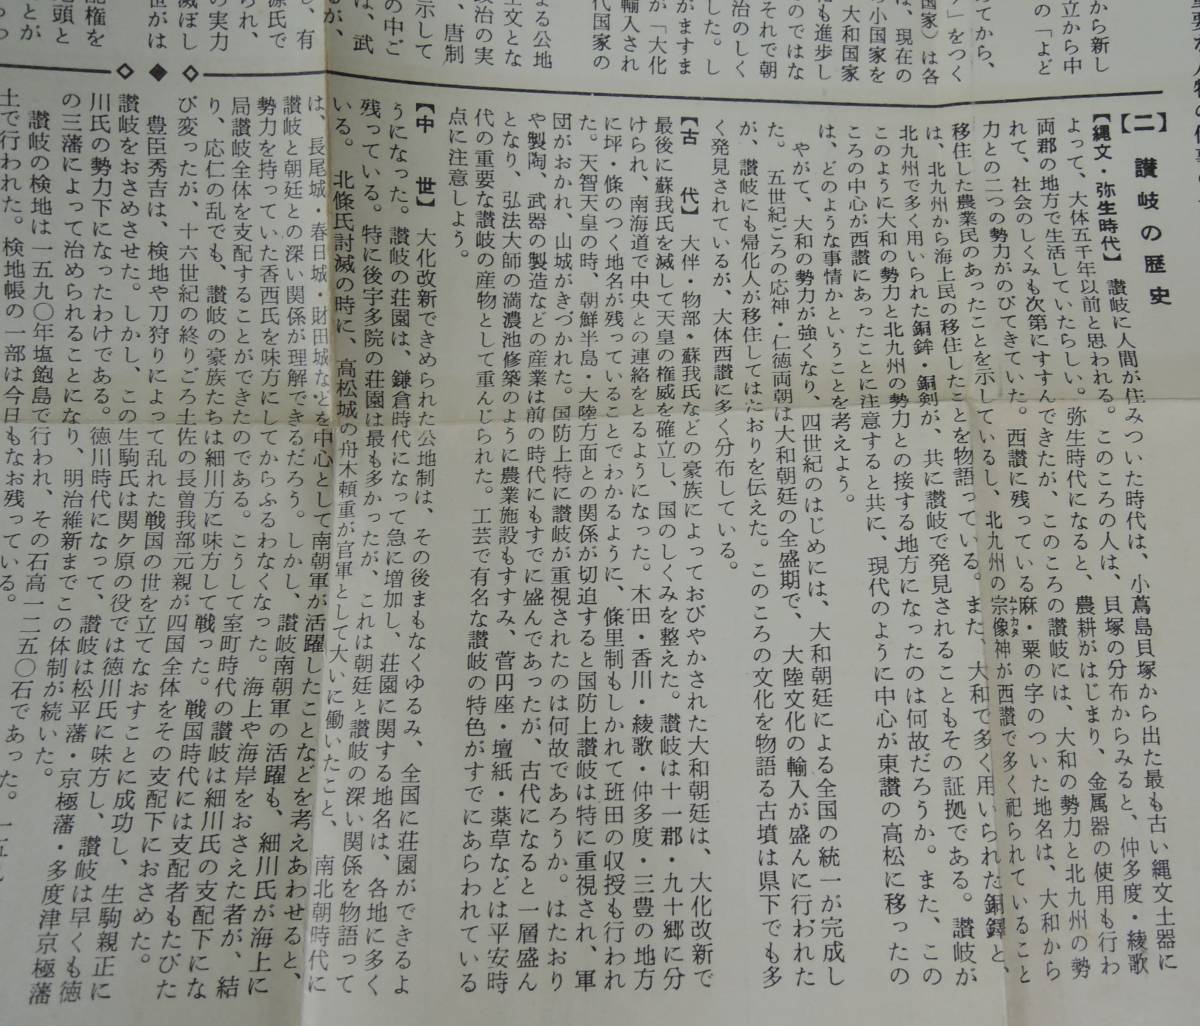 【二 讃岐の歴史
【縄文・弥生時代】 讃岐に人間が住みついた時代は、小蔦島貝塚から出た最も古い縄文土器に
よって、大体五千年以前と思われる。このころの人は、貝塚の分布からみると、仲多度・綾歌
両郡の地方で生活していたらしい。弥生時代になると、農耕がはじまり、金属器の使用も行わ
れて、社会のしくみも次第にすすんできたが、このころの讃岐には、大和の勢力と北九州の勢
力との二つの勢力がのびてきていた。西讃に残っている麻・粟の字のついた地名は、大和から
移住した農業民のあったことを示しているし、北九州の宗像神が西讃で多く祀られていること
ムナカタ
は、北九州から海上民の移住したことを物語っている。また、大和で多く用いられた銅鐸と、
北九州で多く用いられた銅鉾・銅剣が、共に讃岐で発見されることもその証拠である。讃岐が
このように大和の勢力と北九州の勢力との接する地方になったのは何故だろうか。また、この
ころの中心が西讃にあったことに注意すると共に、現代のように中心が東讃の高松に移ったの
は、どのような事情かということを考えよう。
やがて、大和の勢力が強くなり、四世紀のはじめには、大和朝廷による全国の統一が完成し
た。五世紀ごろの応神・仁徳両朝は大和朝廷の全盛期で、大陸文化の輸入が盛んに行われた
が、讃岐にも帰化人が移住してはたおりを伝えた。このころの文化を物語る古墳は県下でも多
く発見されているが、大体西讃に多く分布している。
【古 代】 大伴・物部・蘇我氏などの豪族によっておびやかされた大和朝廷は、大化改新で
最後に蘇我氏を滅して天皇の権威を確立し、国のしくみを整えた。讃岐は十一郡・九十郷に分
けられ、南海道で中央との連絡をとるようになった。木田・香川・綾歌・仲多度・三豊の地方
に坪・條のつく地名が残っていることでわかるように、條里制もしかれて班田の収授も行われ
た。天智天皇の時、朝鮮半島・大陸方面との関係が切迫すると国防上讃岐は特に重視され、軍
団がおかれ、山城がきづかれた。国防上特に讃岐が重視されたのは何故であろうか。はたおり
や製陶、武器の製造などの産業は前の時代にもすでに盛んであったが、古代になると一層盛ん
となり、弘法大師の満濃池修築のように農業施設もすすみ、菅円座・壇紙・薬草などは平安時
代の重要な讃岐の産物として重んじられた。工芸で有名な讃岐の特色がすでにあらわれている
点に注意しよう。
【中 世】 大化改新できめられた公地制は、その後まもなくゆるみ、全国に荘園ができるよ
うになった。讃岐の荘園は、鎌倉時代になって急に増加し、荘園に関する地名は、各地に多く
残っている。特に後宇多院の荘園は最も多かったが、これは朝廷と讃岐の深い関係を物語って
いる。北條氏討滅の時に、高松城の舟木頼重が官軍として大いに働いたこと、南北朝時代に
は、長尾城・春日城・財田城などを中心として南朝軍が活躍したことなどを考えあわせると、
讃岐と朝廷との深い関係が理解できるだろう。しかし、讃岐南朝軍の活躍も、細川氏が海上に
勢力を持っていた香西氏を味方にしてからふるわなくなった。海上や海岸をおさえた者が、結
局讃岐全体を支配することができたのである。こうして室町時代の讃岐は細川氏の支配下にな
り、応仁の乱でも、讃岐の豪族たちは細川方に味方して戦った。戦国時代には支配者もたびた
び変ったが、十六世紀の終りごろ土佐の長曽我部元親が四国全体をその支配下におさめた。
豊臣秀吉は、検地や刀狩りによって乱れた戦国の世を立てなおすことに成功し、生駒親正に
讃岐をおさめさせた。しかし、この生駒氏は関ヶ原の役では徳川氏に味方し、讃岐は早くも徳
川氏の勢力下になったわけである。徳川時代になって、讃岐は松平藩・京極藩・多度津京極藩
の三藩によって治められることになり、明治維新までこの体制が続いた。
讃岐の検地は一五九〇年塩飽島で行われ、その石高一二五〇石であった。
土で行われた。検地帳の一部は今日もなお残っている。